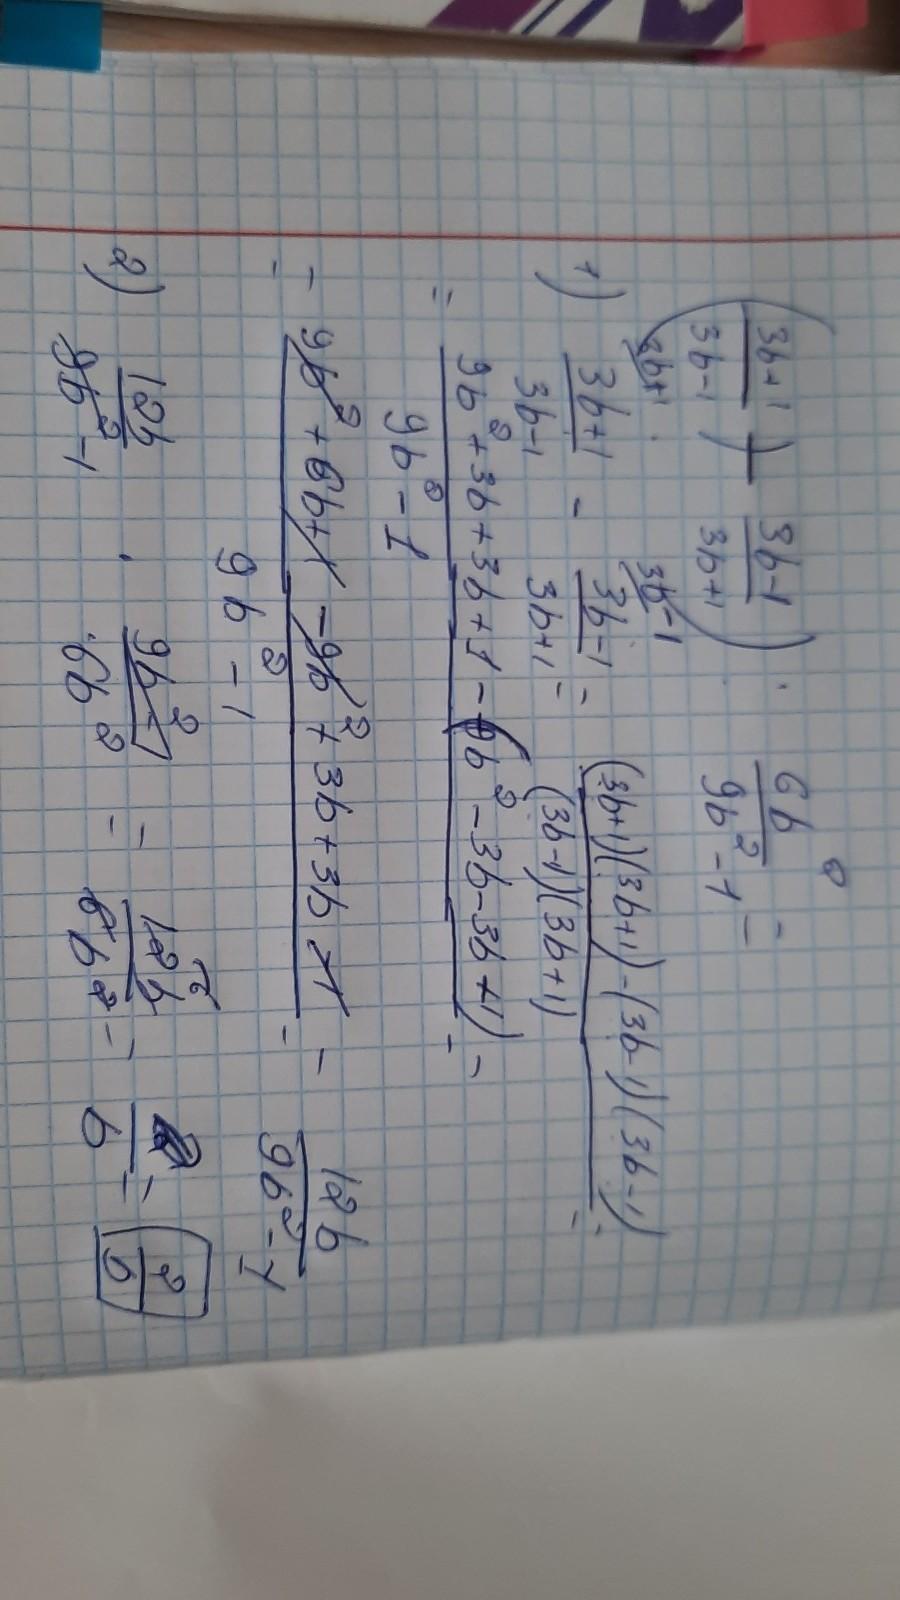 (3b+1/3b-1 - 3b-1/3b+1) · 6b/9b²-1 =
1) 3b+1/3b-1 - 3b-1/3b+1 = (3b+1)(3b+1)-(3b-1)(3b-1)/(3b-1)(3b+1) =
= 9b²+3b+3b+1-(9b²-3b-3b+1)/9b²-1 =
= 9b²+6b+1-9b²+3b+3b-1/9b²-1 = 12b/9b²-1
2) 12b/9b²-1 · 9b²-1/6b² = 12b/6b² = 2/b